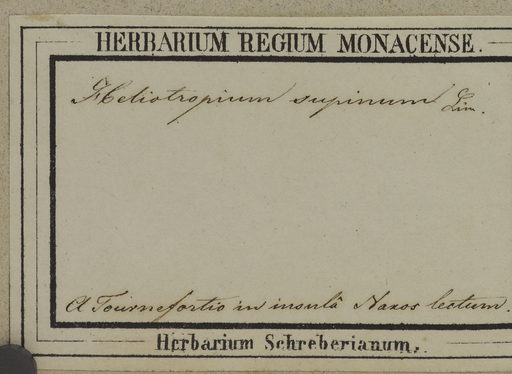 HERBARIUM REGIUM MONACENSE.
Heliotropium supinum Lin.
A Tournefortio in insulâ Naxos lectum.
Herbarium Schreberianum.